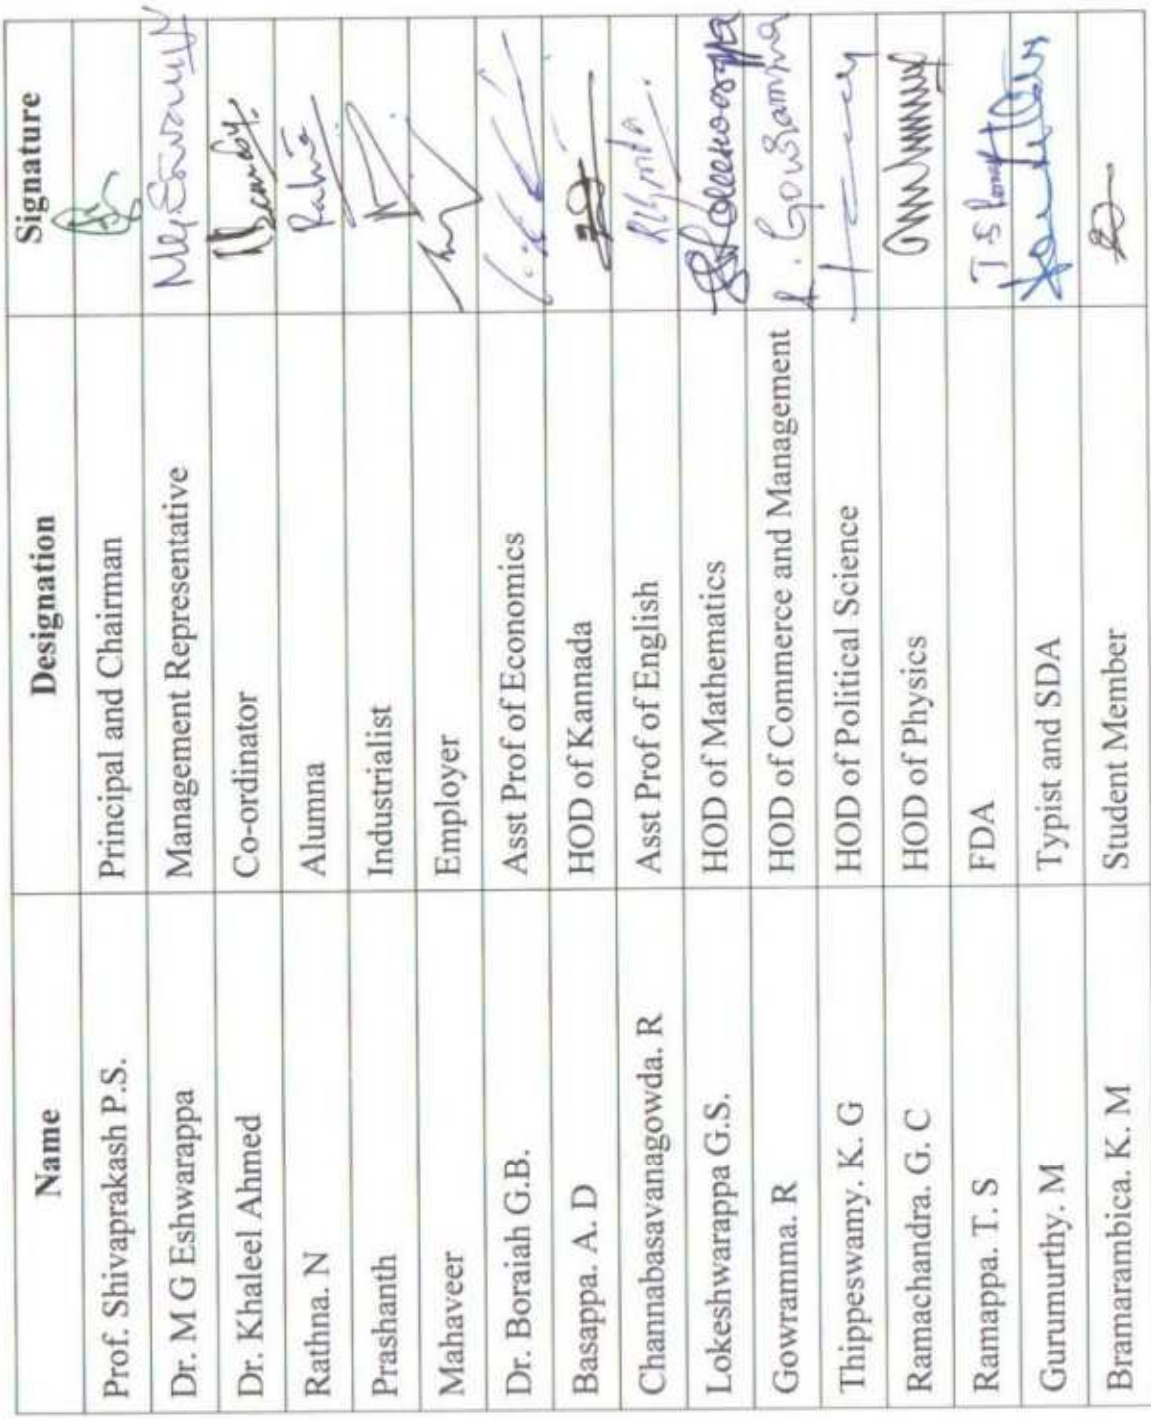 Name Designation Signature
Prof. Shivaprakash P.S. Principal and Chairman
Dr. M G Eshwarappa Management Representative
Dr. Khaleel Ahmed Co-ordinator
Rathna. N Alumna
Prashanth Industrialist
Mahaveer Employer
Dr. Boraiah G.B. Asst Prof of Economics
Basappa. A. D HOD of Kannada
Channabasavanagowda. R Asst Prof of English
Lokeshwarappa G.S. HOD of Mathematics
Gowramma. R HOD of Commerce and Management
Thippeswamy. K. G HOD of Political Science
Ramachandra. G. C HOD of Physics
Ramappa. T. S FDA T S
Gurumurthy. M Typist and SDA
Bramarambica. K. M Student Member